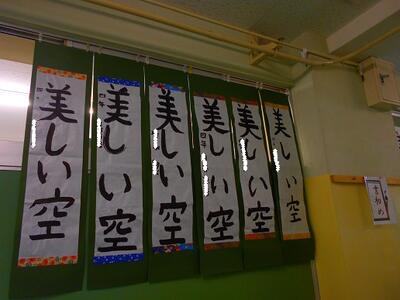 美しい空
四年
美しい空
四年
美しい空
美しい空
四年
美しい空
美しい空
書初め